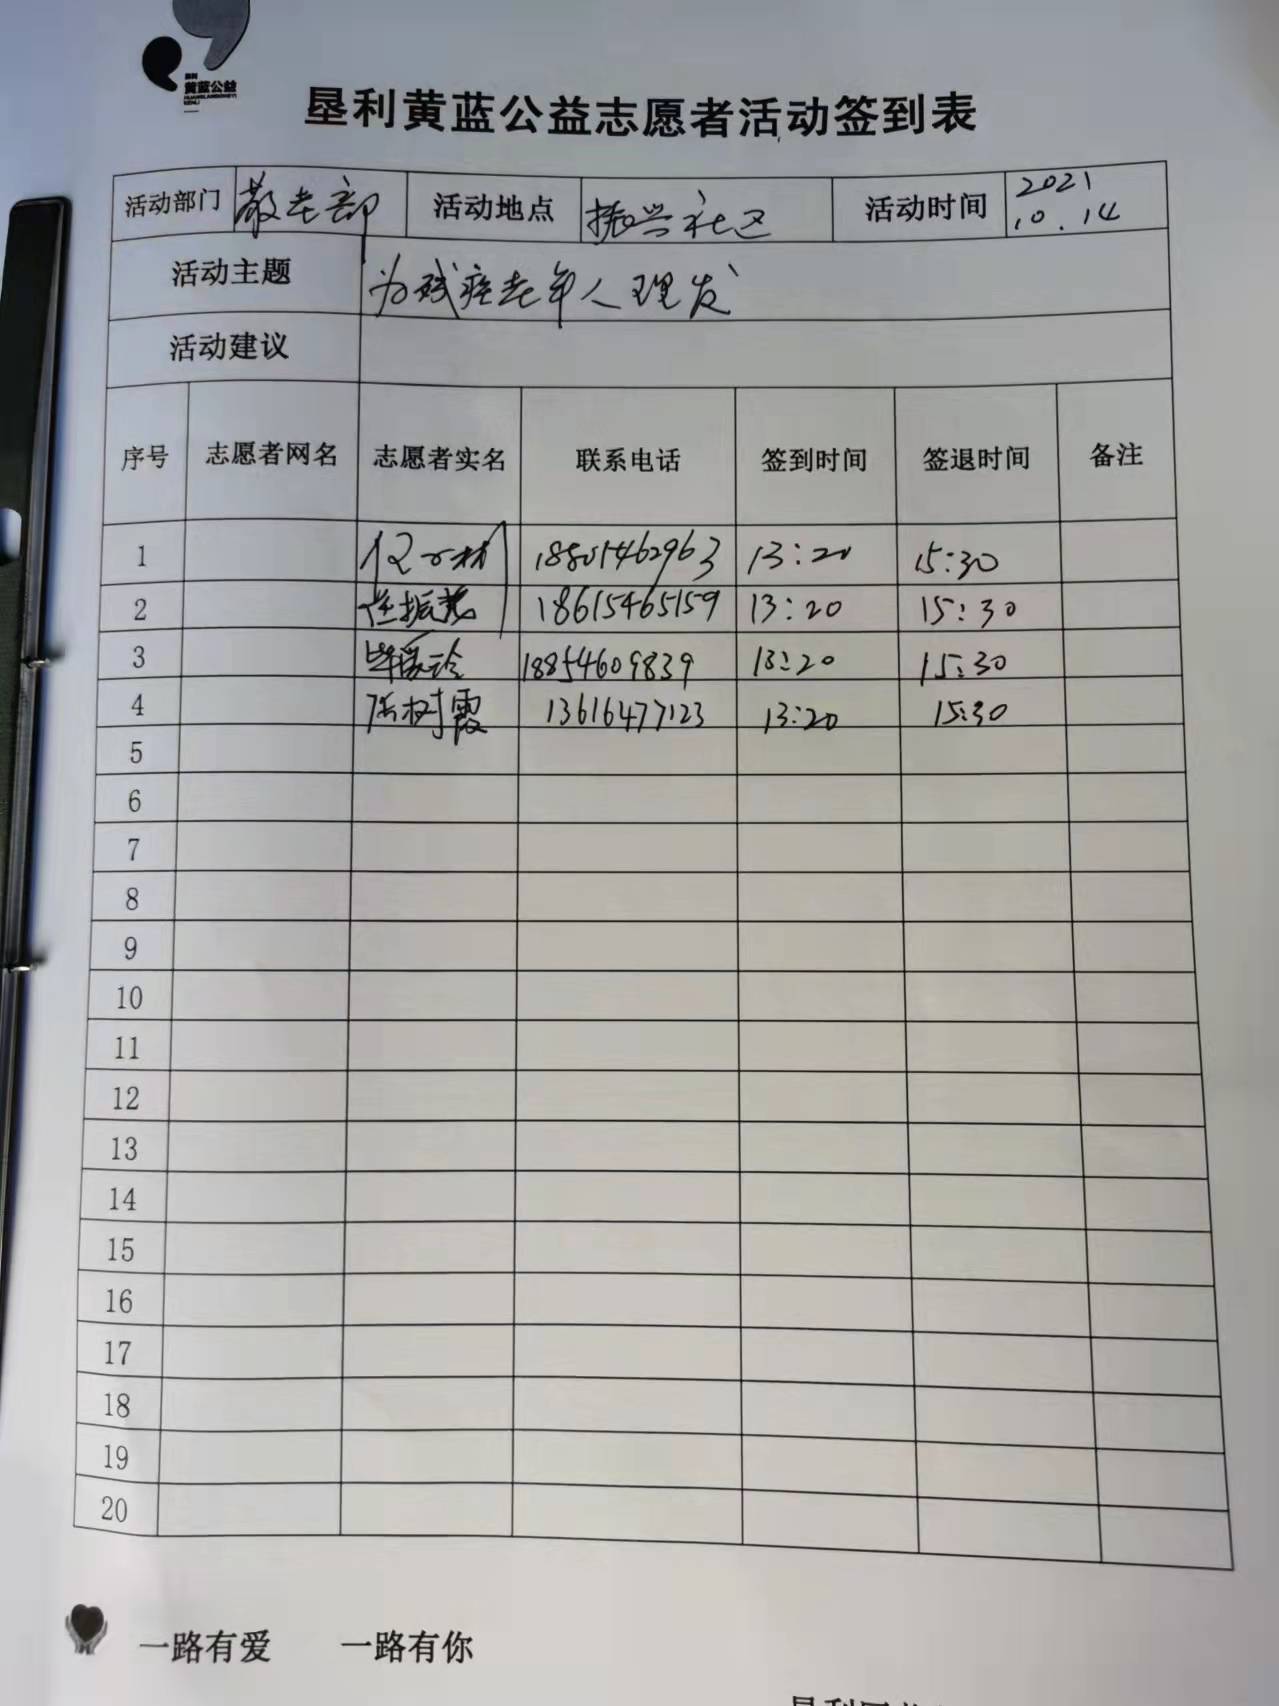 垦利
黄蓝公益
HUANGLANGONGYI
KENLI
垦利黄蓝公益志愿者活动签到表
活动部门 敬老部 活动地点 振兴社区 活动时间 2021
10.14
活动主题 为残疾老年人理发
活动建议
序号 志愿者网名 志愿者实名 联系电话 签到时间 签退时间 备注
1 13:20 15:30
2 18615465159 13:20 15:30
3 18854609839 13:20 15:30
4 树霞 13616477123 13:20 15:30
5
6
7
8
9
10
11
12
13
14
15
16
17
18
19
20
一路有爱 一路有你